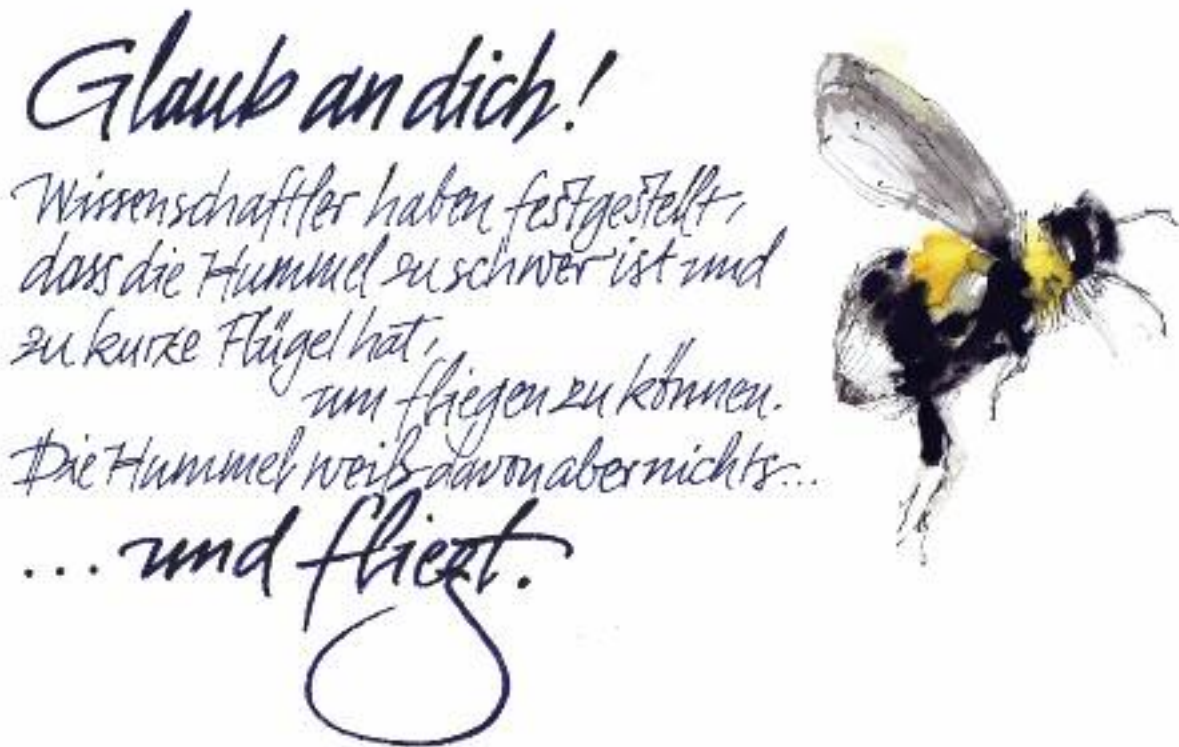 Glaub an dich!
Wissenschaftler haben festgestellt,
dass die Hummel zu schwer ist und
zu kurze Flügel hat,
um fliegen zu können.
Die Hummel weiß davon aber nichts...
... und fliegt.